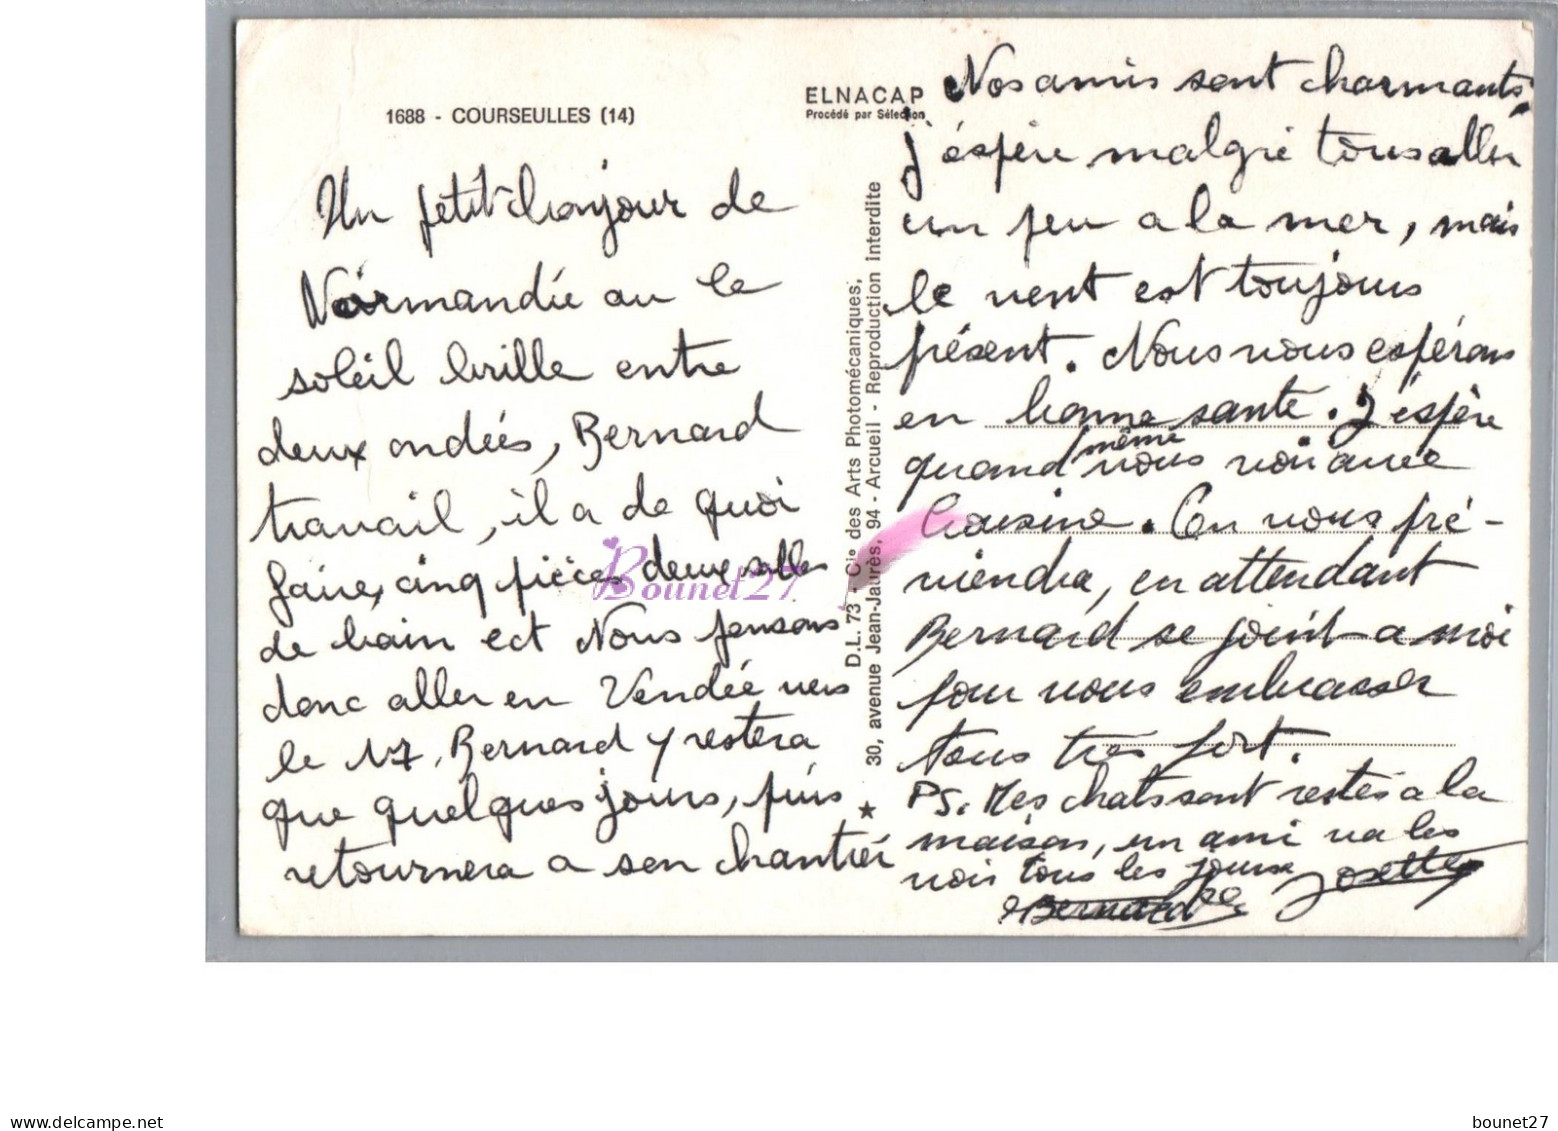 1688 - COURSEULLES (14)
ELNACAP
Procédé par Sélection
Un petit bonjour de
Normandie ou le
soleil brille entre
deux ondées, Bernard
travail, il a de quoi
faire, cinq pièces deux salles
de bain ect Nous pensons
donc aller en Vendée vers
le 17, Bernard y restera
que quelques jours, puis
retournera a son chantier
D.L. 73 - Cie des Arts Photomécaniques,
30, avenue Jean-Jaurès, 94 - Arcueil - Reproduction Interdite
Nos amis sont charmants,
j'éspère malgré tous aller
un peu a la mer, mais
le vent est toujours
présent. Nous vous espérons
en bonne santé. J'éspère
quand même vous voir avec
Cousine. On vous pré-
viendra, en attendant
Bernard se joint a moi
pour vous embrasser
tous très fort.
PS. Mes chats sont restés a la
maison, un ami va les
voir tous les jours
Josette
Bernard
Bounet27
www.delcampe.net
bounet27